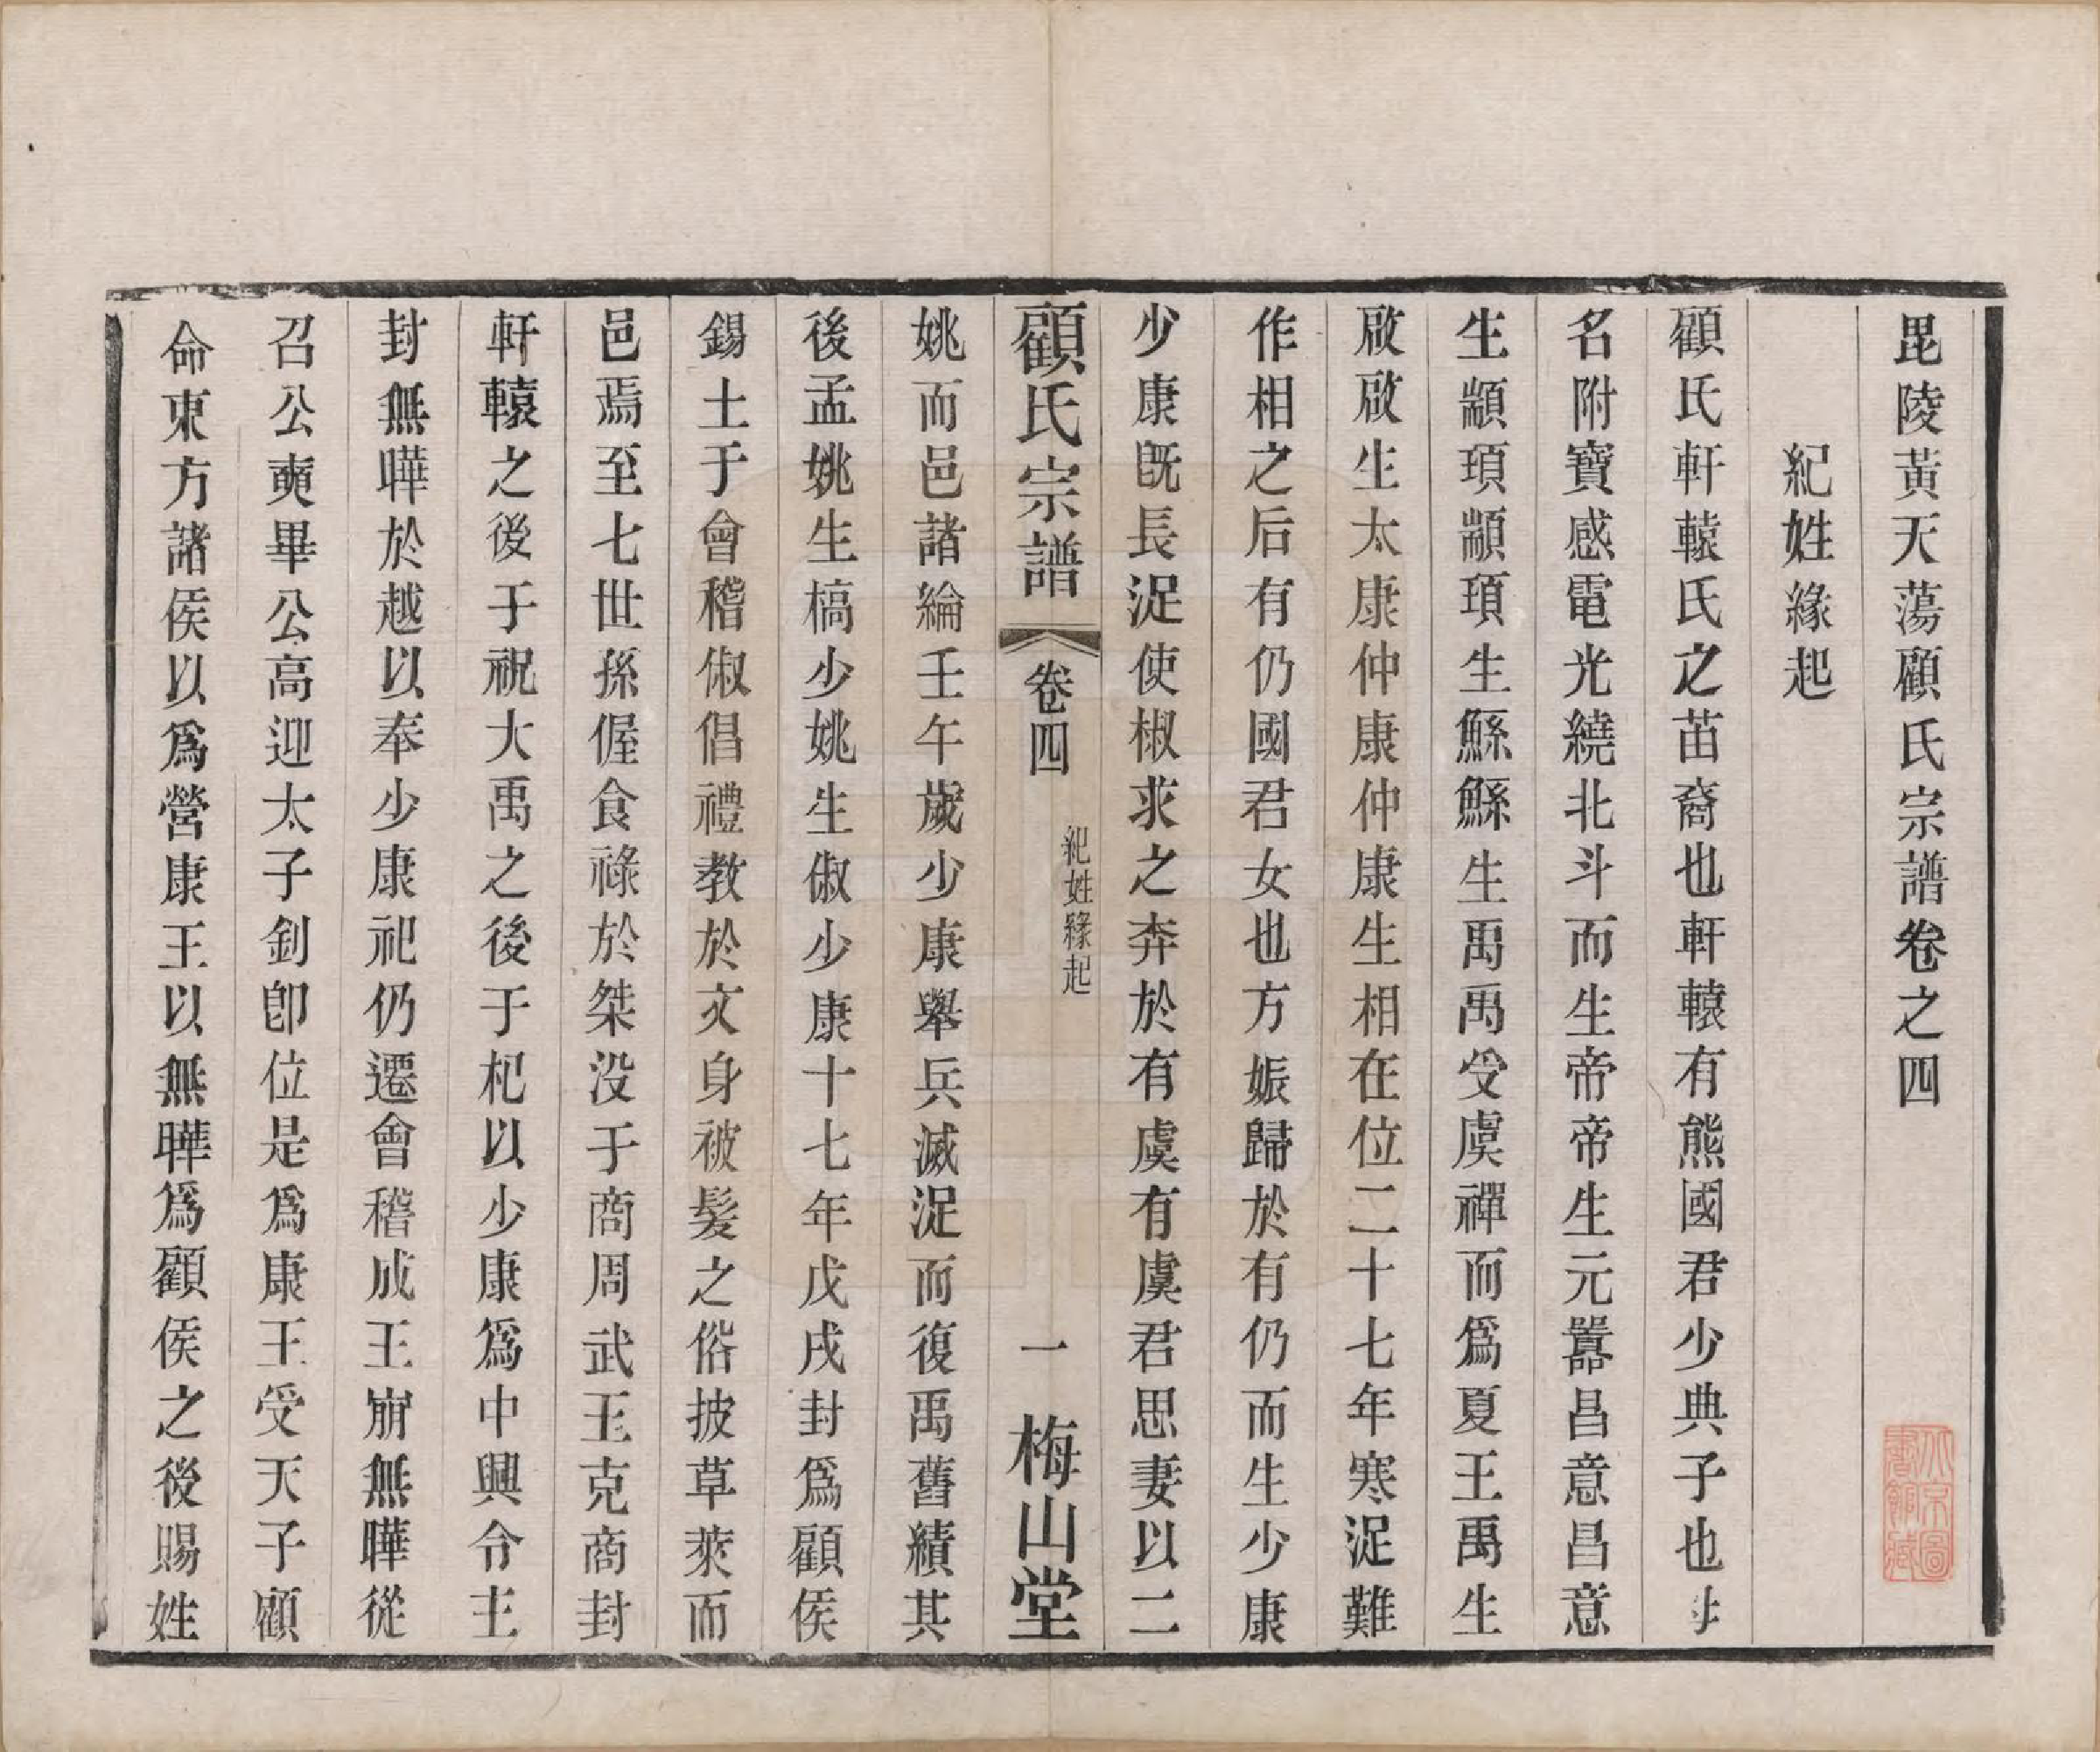 毘陵黃天蕩顧氏宗譜卷之四
紀姓緣起
顧氏軒轅氏之苗裔也軒轅有熊國君少典子也母
名附寶感電光繞北斗而生帝帝生元囂昌意昌意
生顓頊顓頊生鯀鯀生禹禹受虞禪而爲夏王禹生
啟啟生太康仲康仲康生相在位二十七年寒浞難
作相之后有仍國君女也方娠歸於有仍而生少康
少康旣長浞使椒求之奔於有虞有虞君思妻以二
顧氏宗譜
卷四
紀姓緣起
一
梅山堂
姚而邑諸綸壬午歲少康舉兵滅浞而復禹舊績其
後孟姚生槁少姚生俶少康十七年戊戌封爲顧侯
錫土于會稽俶倡禮教於文身被髮之俗披草萊而
邑焉至七世孫偓食祿於桀没于商周武王克商封
軒轅之後于祝大禹之後于杞以少康爲中興令主
封無曄於越以奉少康祀仍遷會稽成王崩無曄從
召公奭畢公高迎太子釗卽位是爲康王受天子顧
命東方諸侯以爲營康王以無曄爲顧侯之後賜姓